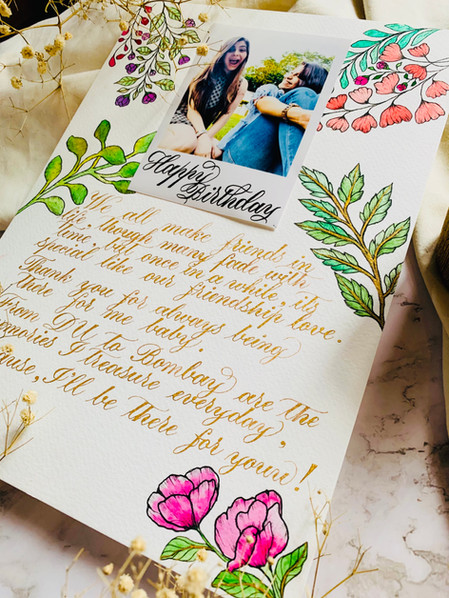 Happy
Birthday
We all make friends in
life, though many fade with
time, but once in a while, its
special like our friendship love.
Thank you for always being
there for me baby.
From DU to Bombay are the
memories I treasure everyday,
I'll be there for youu!